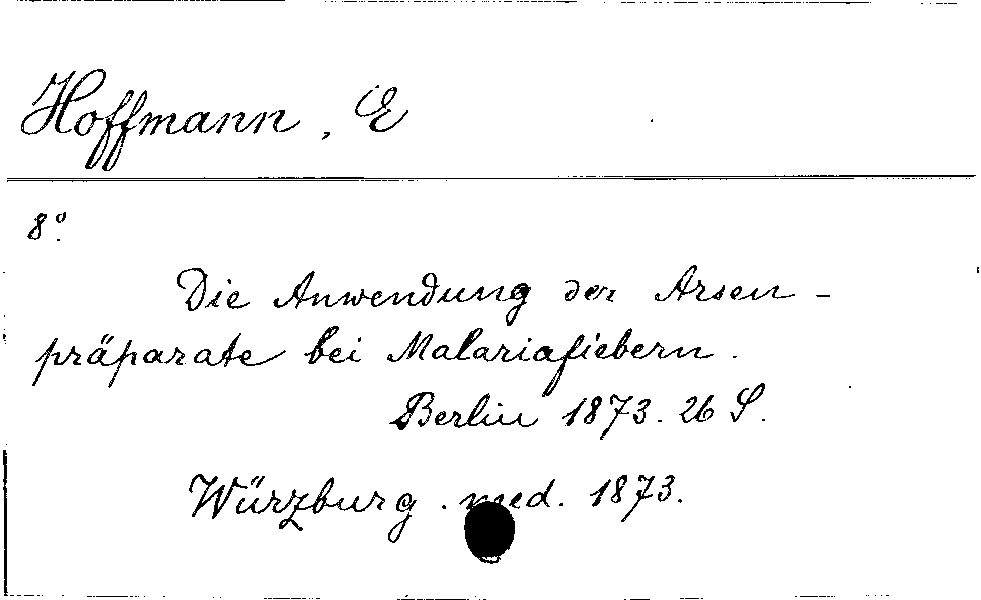 Hoffmann, E
8°.
Die Anwendung der Arsen-
präparate bei Malariafiebern.
Berlin 1873. 26 S.
Würzburg. med. 1873.